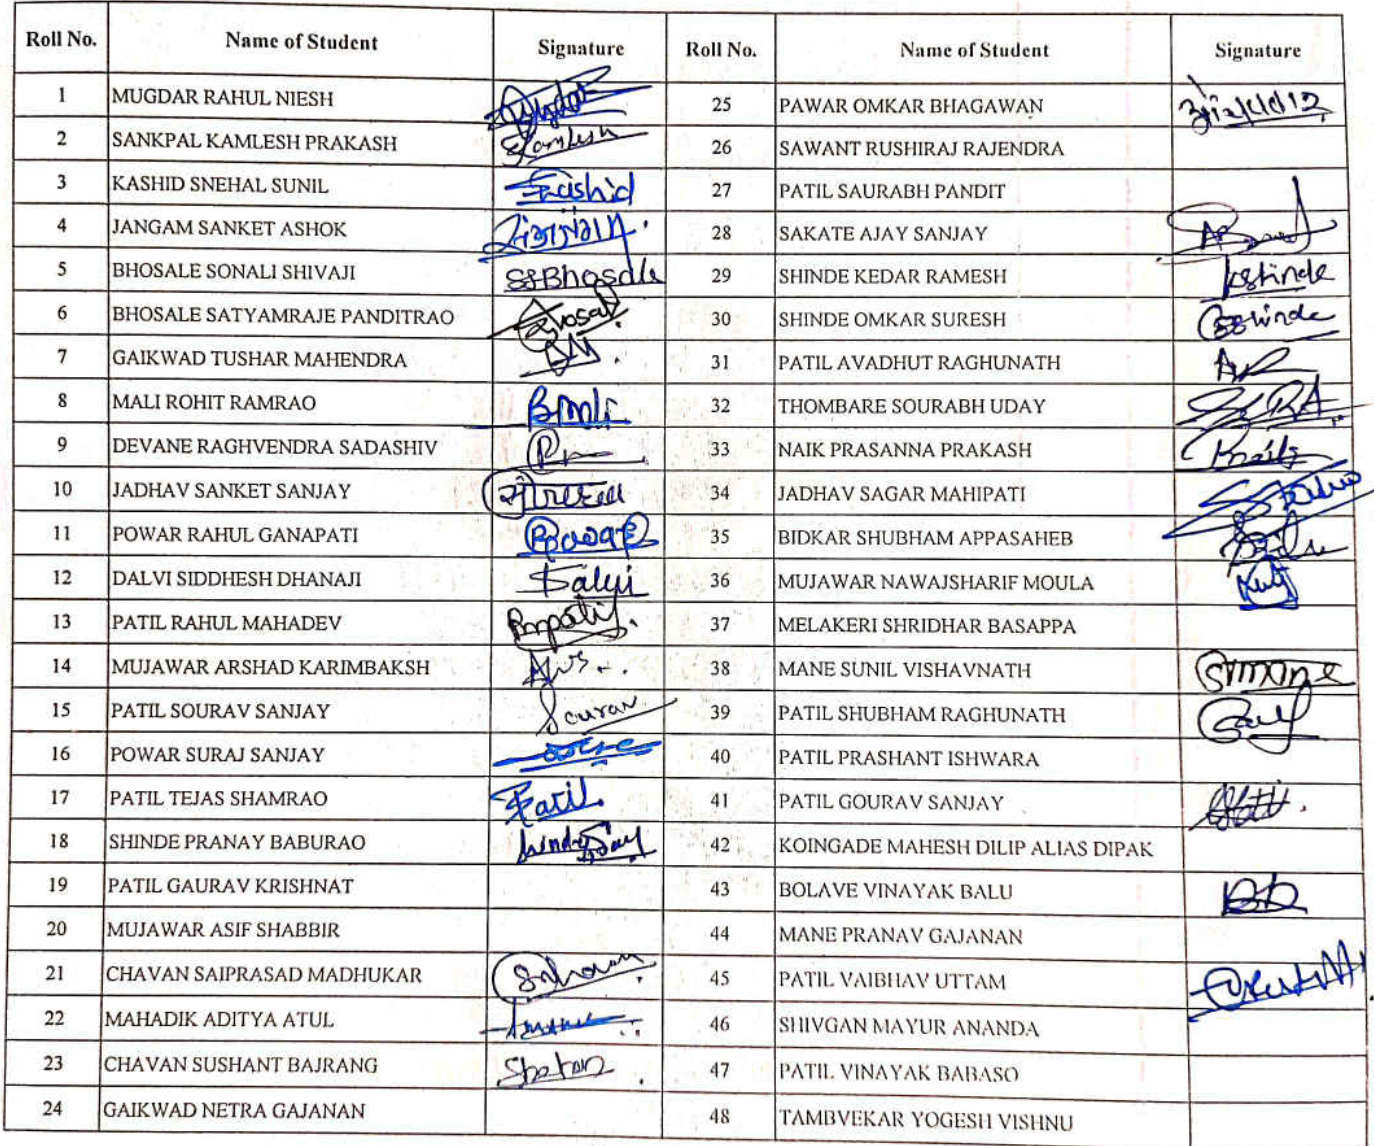 Roll No. Name of Student Signature Roll No. Name of Student Signature
1 MUGDAR RAHUL NIESH 25 PAWAR OMKAR BHAGAWAN
2 SANKPAL KAMLESH PRAKASH Kamlesh 26 SAWANT RUSHIRAJ RAJENDRA
3 KASHID SNEHAL SUNIL Kashid 27 PATIL SAURABH PANDIT
4 JANGAM SANKET ASHOK 28 SAKATE AJAY SANJAY
5 BHOSALE SONALI SHIVAJI SSBhosale 29 SHINDE KEDAR RAMESH kshinde
6 BHOSALE SATYAMRAJE PANDITRAO 30 SHINDE OMKAR SURESH
7 GAIKWAD TUSHAR MAHENDRA 31 PATIL AVADHUT RAGHUNATH
8 MALI ROHIT RAMRAO 32 THOMBARE SOURABH UDAY
9 DEVANE RAGHVENDRA SADASHIV 33 NAIK PRASANNA PRAKASH
10 JADHAV SANKET SANJAY 34 JADHAV SAGAR MAHIPATI
11 POWAR RAHUL GANAPATI 35 BIDKAR SHUBHAM APPASAHEB
12 DALVI SIDDHESH DHANAJI Dalvi 36 MUJAWAR NAWAJSHARIF MOULA
13 PATIL RAHUL MAHADEV Rmpatil. 37 MELAKERI SHRIDHAR BASAPPA
14 MUJAWAR ARSHAD KARIMBAKSH 38 MANE SUNIL VISHAVNATH
15 PATIL SOURAV SANJAY Sourav 39 PATIL SHUBHAM RAGHUNATH
16 POWAR SURAJ SANJAY 40 PATIL PRASHANT ISHWARA
17 PATIL TEJAS SHAMRAO Patil. 41 PATIL GOURAV SANJAY
18 SHINDE PRANAY BABURAO 42 KOINGADE MAHESH DILIP ALIAS DIPAK
19 PATIL GAURAV KRISHNAT 43 BOLAVE VINAYAK BALU
20 MUJAWAR ASIF SHABBIR 44 MANE PRANAV GAJANAN
21 CHAVAN SAIPRASAD MADHUKAR 45 PATIL VAIBHAV UTTAM
22 MAHADIK ADITYA ATUL 46 SHIVGAN MAYUR ANANDA
23 CHAVAN SUSHANT BAJRANG 47 PATIL VINAYAK BABASO
24 GAIKWAD NETRA GAJANAN 48 TAMBVEKAR YOGESH VISHNU